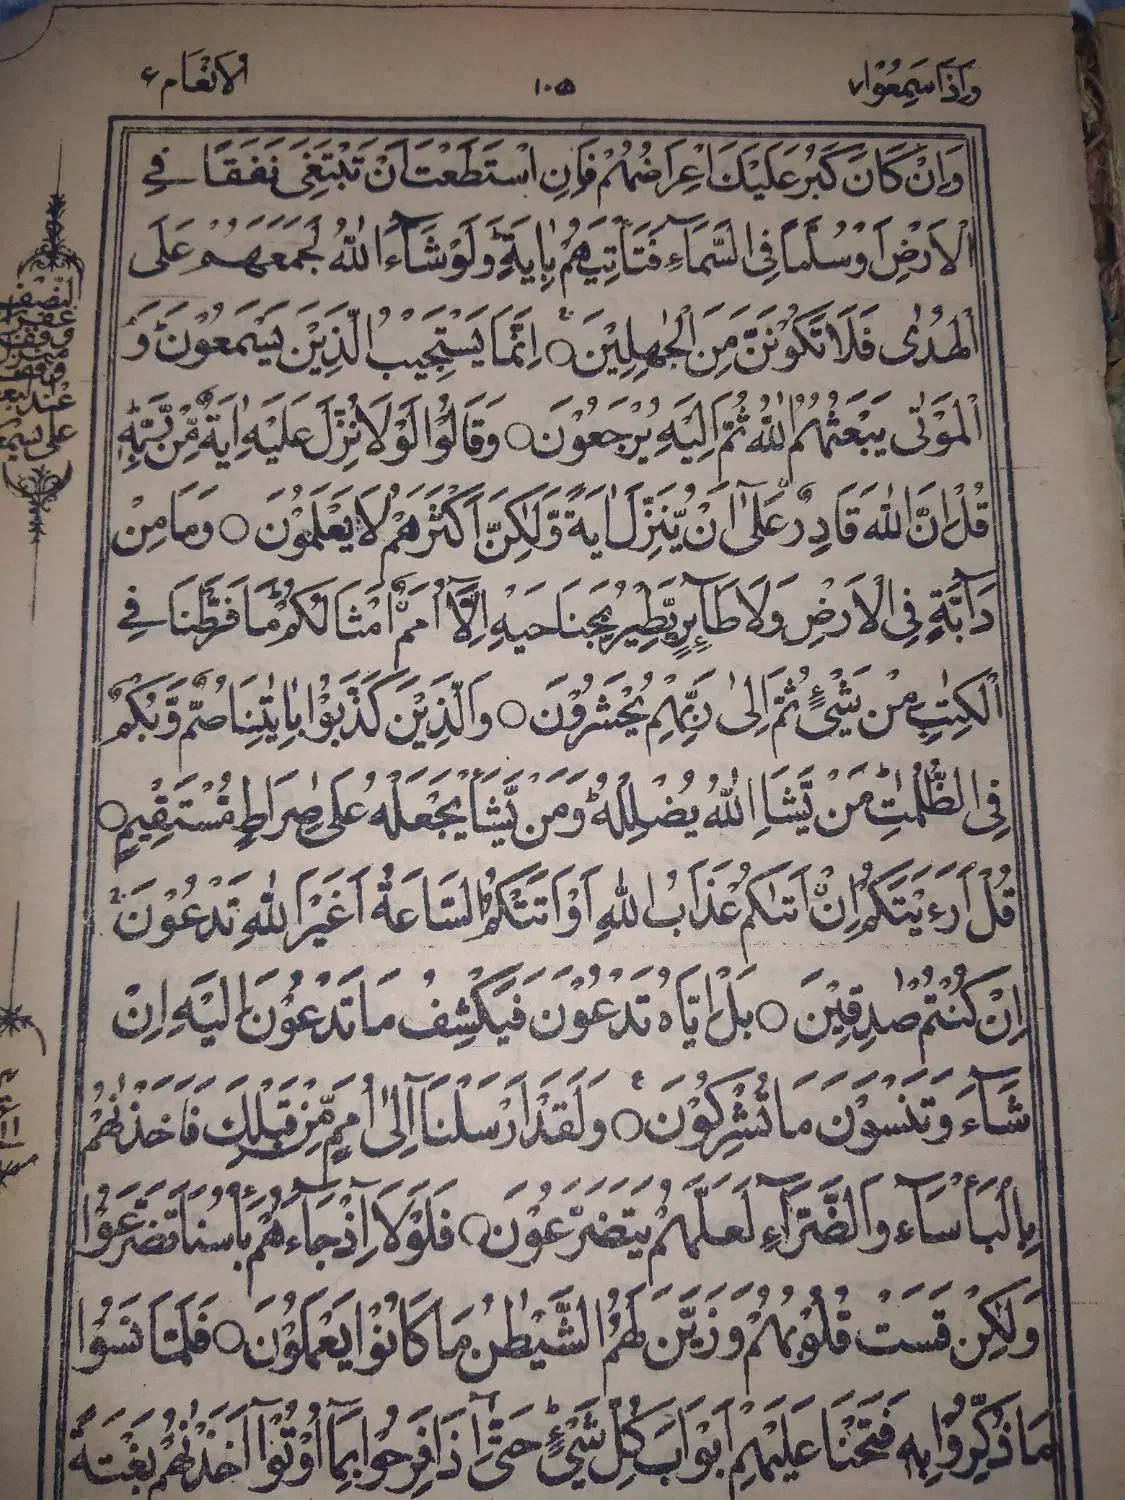 وَاِذَا سَمِعُوْا ۷
۱۰۵
الْاَنْعَام ۶
وَاِنْ كَانَ كَبُرَ عَلَيْكَ اِعْرَاضُهُمْ فَاِنِ اسْتَطَعْتَ اَنْ تَبْتَغِيَ نَفَقًا فِي
الْاَرْضِ اَوْ سُلَّمًا فِي السَّمَآءِ فَتَاْتِيَهُمْ بِاٰيَةٍ ؕ وَلَوْ شَآءَ اللّٰهُ لَجَمَعَهُمْ عَلَى
الْهُدٰى فَلَا تَكُوْنَنَّ مِنَ الْجٰهِلِيْنَ ۝ اِنَّمَا يَسْتَجِيْبُ الَّذِيْنَ يَسْمَعُوْنَ ؕ وَ
الْمَوْتٰى يَبْعَثُهُمُ اللّٰهُ ثُمَّ اِلَيْهِ يُرْجَعُوْنَ ۝ وَقَالُوْا لَوْلَا نُزِّلَ عَلَيْهِ اٰيَةٌ مِّنْ رَّبِّهٖ ؕ
قُلْ اِنَّ اللّٰهَ قَادِرٌ عَلٰۤى اَنْ يُّنَزِّلَ اٰيَةً وَّلٰكِنَّ اَكْثَرَهُمْ لَا يَعْلَمُوْنَ ۝ وَمَا مِنْ
دَآبَّةٍ فِي الْاَرْضِ وَلَا طٰٓئِرٍ يَّطِيْرُ بِجَنَاحَيْهِ اِلَّاۤ اُمَمٌ اَمْثَالُكُمْ ؕ مَا فَرَّطْنَا فِي
الْكِتٰبِ مِنْ شَيْءٍ ثُمَّ اِلٰى رَبِّهِمْ يُحْشَرُوْنَ ۝ وَالَّذِيْنَ كَذَّبُوْا بِاٰيٰتِنَا صُمٌّ وَّبُكْمٌ
فِي الظُّلُمٰتِ ؕ مَنْ يَّشَاِ اللّٰهُ يُضْلِلْهُ ؕ وَمَنْ يَّشَاْ يَجْعَلْهُ عَلٰى صِرَاطٍ مُّسْتَقِيْمٍ ۝
قُلْ اَرَءَيْتَكُمْ اِنْ اَتٰىكُمْ عَذَابُ اللّٰهِ اَوْ اَتَتْكُمُ السَّاعَةُ اَغَيْرَ اللّٰهِ تَدْعُوْنَ ۚ
اِنْ كُنْتُمْ صٰدِقِيْنَ ۝ بَلْ اِيَّاهُ تَدْعُوْنَ فَيَكْشِفُ مَا تَدْعُوْنَ اِلَيْهِ اِنْ
شَآءَ وَتَنْسَوْنَ مَا تُشْرِكُوْنَ ۝ وَلَقَدْ اَرْسَلْنَاۤ اِلٰۤى اُمَمٍ مِّنْ قَبْلِكَ فَاَخَذْنٰهُمْ
بِالْبَاْسَآءِ وَالضَّرَّآءِ لَعَلَّهُمْ يَتَضَرَّعُوْنَ ۝ فَلَوْلَاۤ اِذْ جَآءَهُمْ بَاْسُنَا تَضَرَّعُوْا
وَلٰكِنْ قَسَتْ قُلُوْبُهُمْ وَزَيَّنَ لَهُمُ الشَّيْطٰنُ مَا كَانُوْا يَعْمَلُوْنَ ۝ فَلَمَّا نَسُوْا
مَا ذُكِّرُوْا بِهٖ فَتَحْنَا عَلَيْهِمْ اَبْوَابَ كُلِّ شَيْءٍ ؕ حَتّٰۤى اِذَا فَرِحُوْا بِمَاۤ اُوْتُوْۤا اَخَذْنٰهُمْ بَغْتَةً